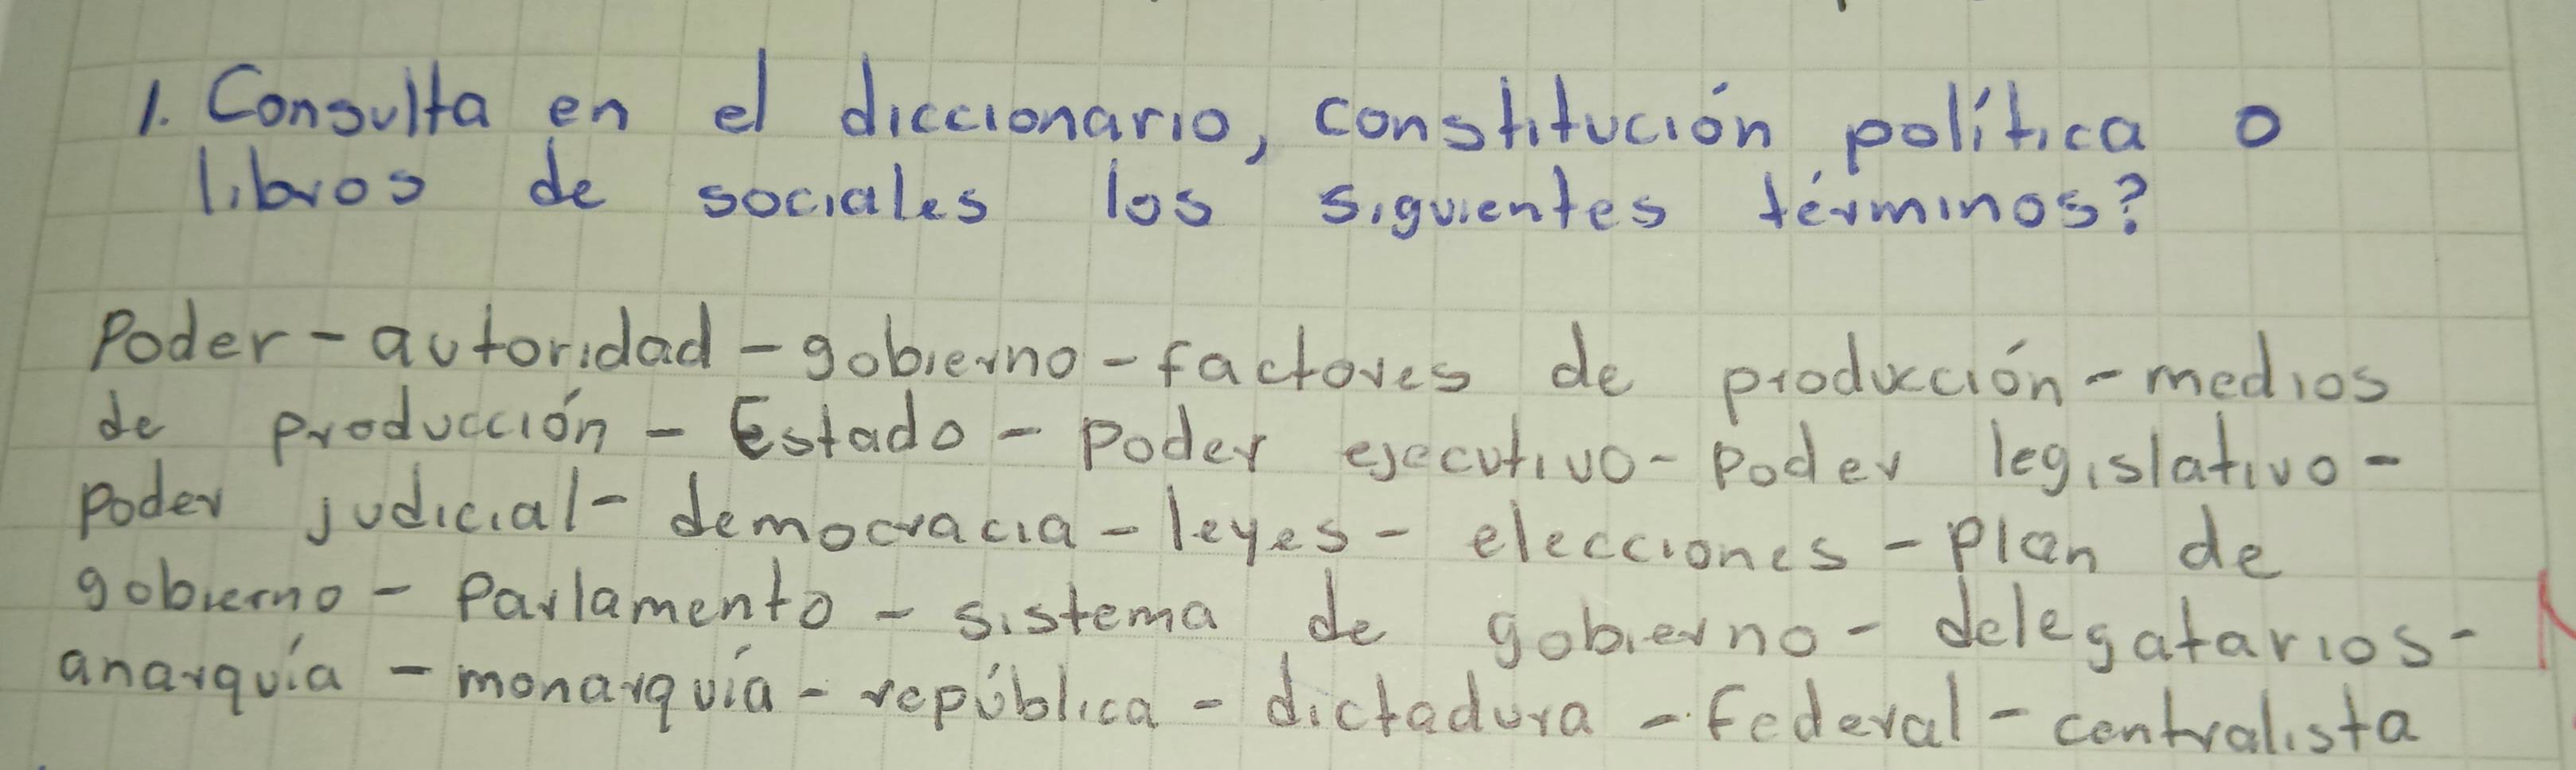 1. Consulta en el diccionario, constitución política o
libros de sociales los siguientes términos?
Poder - autoridad - gobierno - factores de producción - medios
de producción - Estado - Poder ejecutivo - Poder legislativo -
Poder judicial - democracia - leyes - elecciones - Plan de
gobierno - Parlamento - sistema de gobierno - delegatarios -
anarquía - monarquía - república - dictadura - federal - centralista